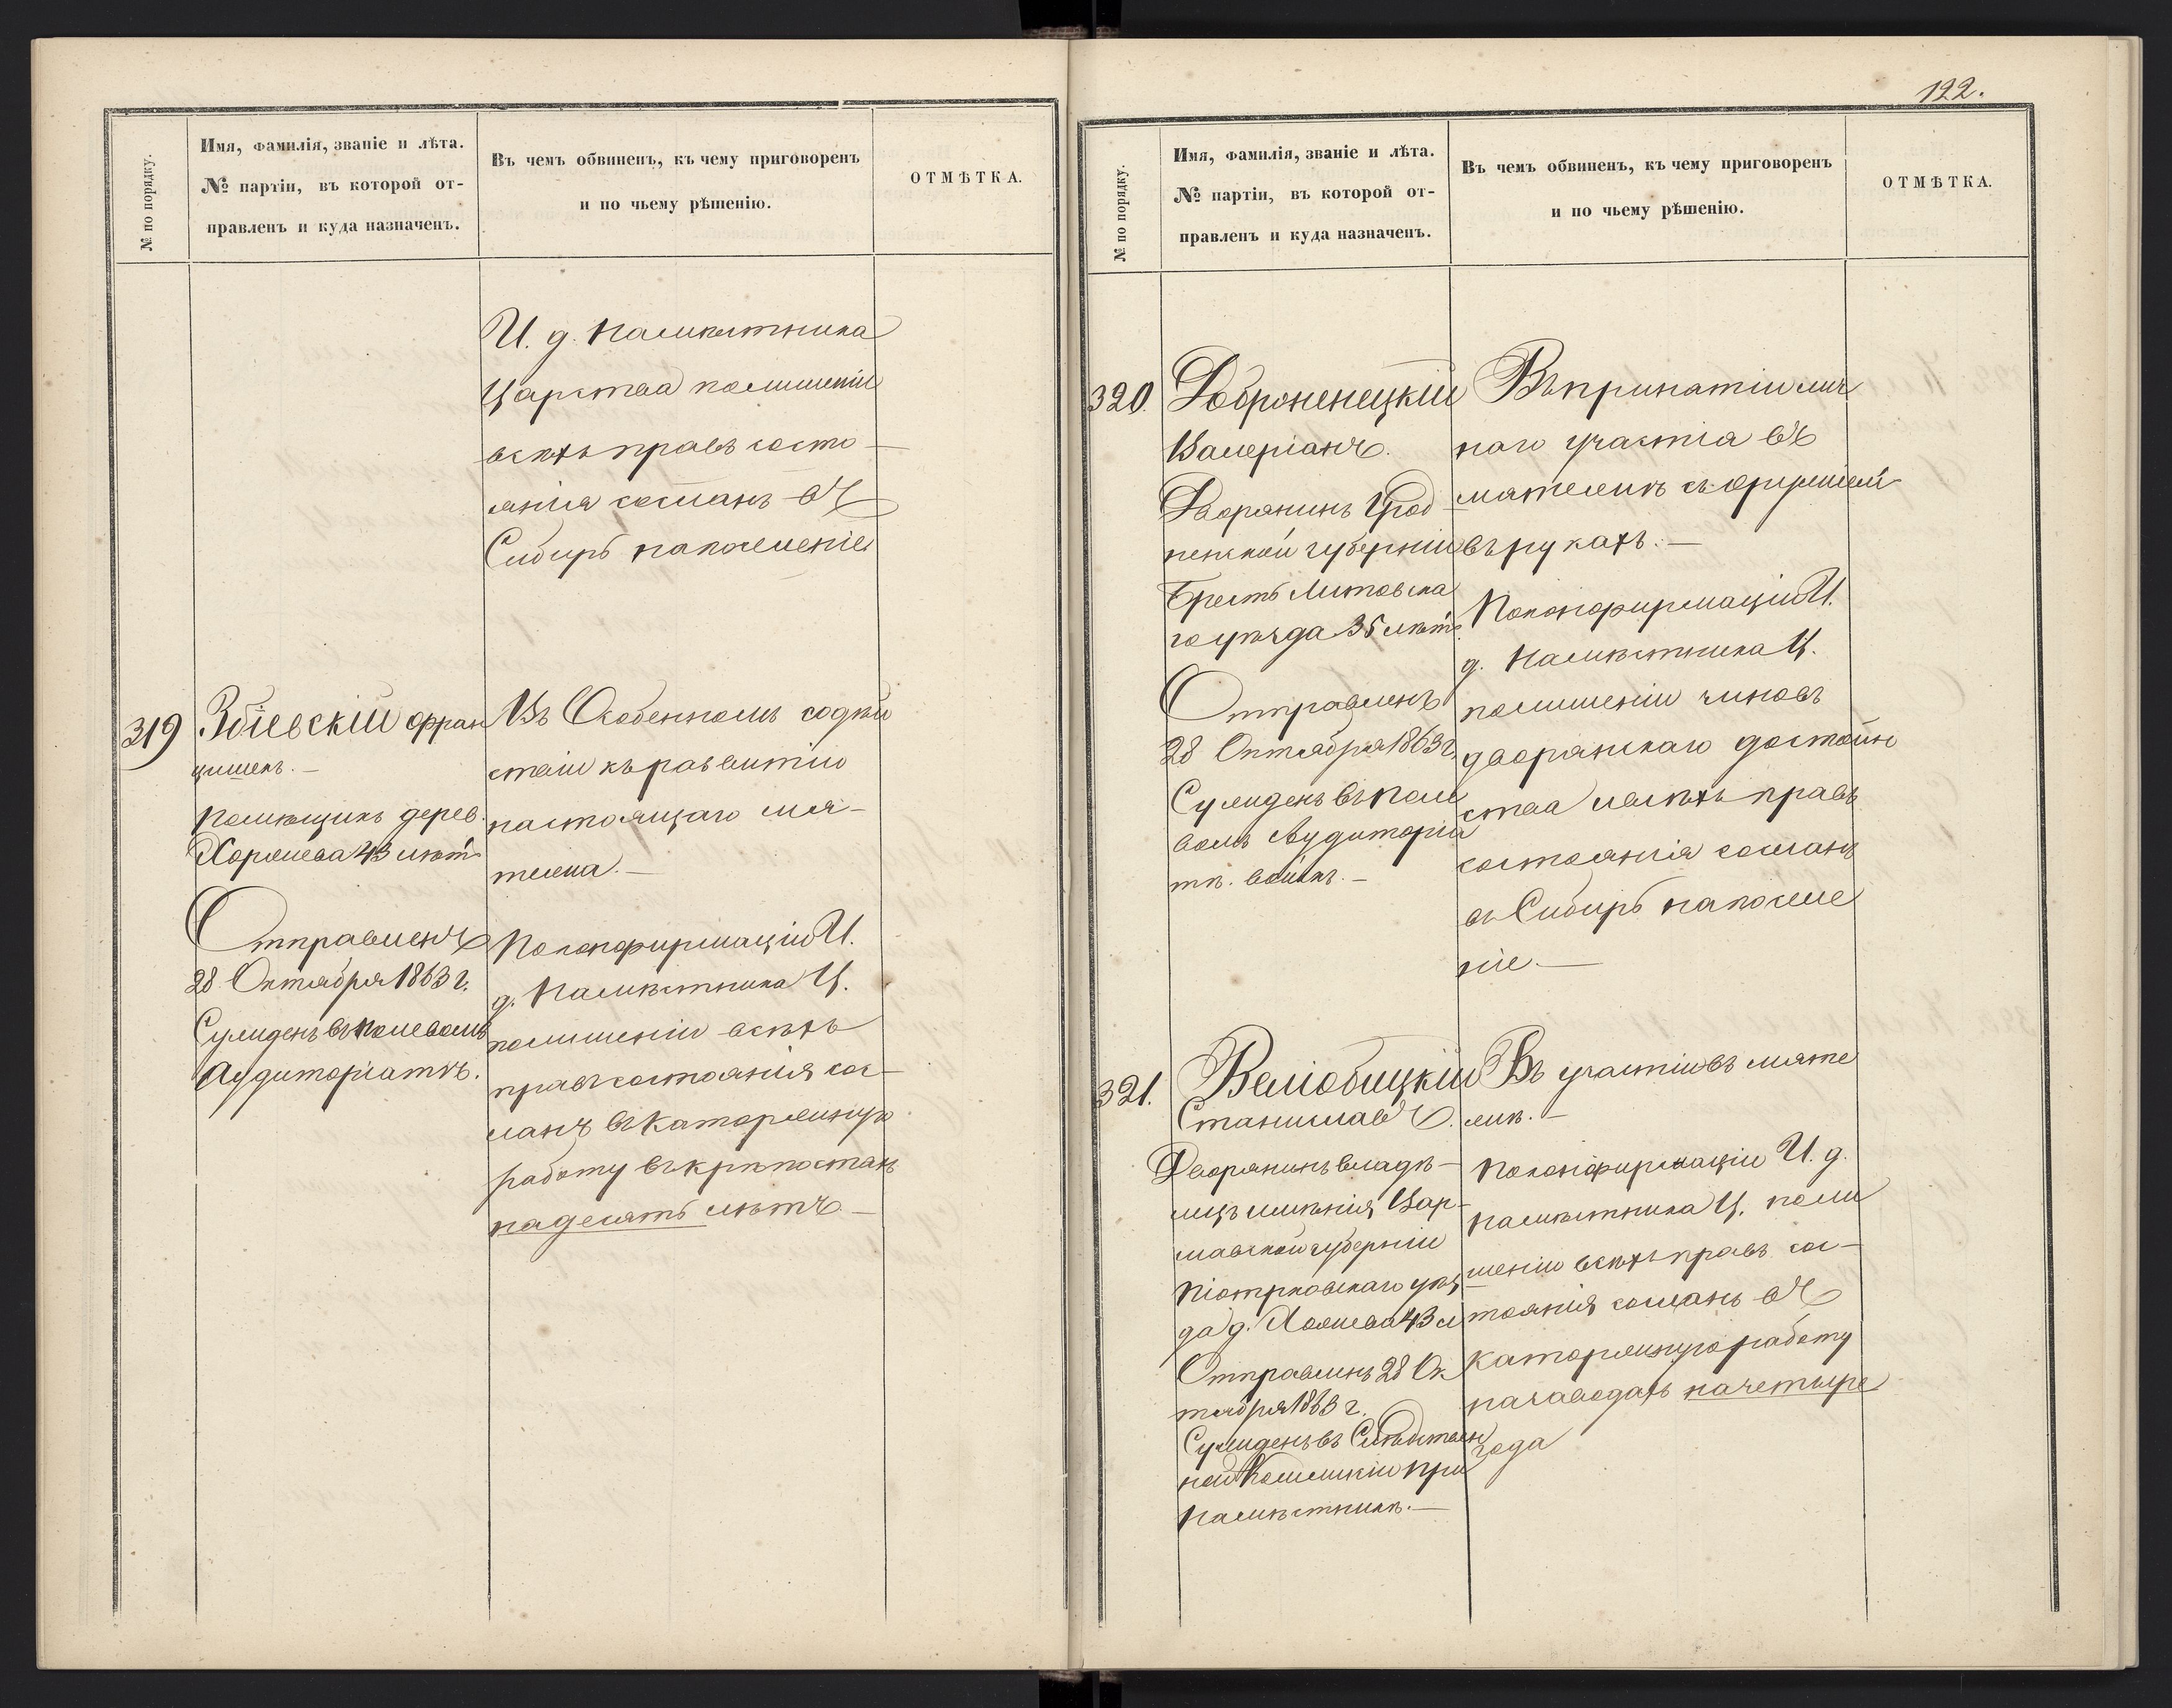 № по порядку.
Имя, фамилія, званіе и лѣта.
№ партіи, въ которой от-
правленъ и куда назначенъ.
Въ чемъ обвиненъ, къ чему приговоренъ
и по чьему рѣшенію.
ОТМѢТКА.
И. д. Намѣстника
Царства полишеніи
всѣхъ правъ состо-
янія сосланъ въ
Сибирь напоселеніе
319
Збіевскій Фран
цишекъ.—
Помѣщикъ дерев.
43 лѣтъ
Отправленъ
28 Октября 1863 г.
Сужденъ въ Полевомъ
Аудиторіатѣ.
Въ Особенномъ содѣй
ствіи къ развитію
настоящаго мя-
тежа.—
По конфирмаціи И.
д. Намѣстника Ц.
полишеніи всѣхъ
правъ состоянія сос-
ланъ въ Каторжную
работу въ крѣпостяхъ
на десять лѣтъ—
122.
№ по порядку.
Имя, фамилія, званіе и лѣта.
№ партіи, въ которой от-
правленъ и куда назначенъ.
Въ чемъ обвиненъ, къ чему приговоренъ
и по чьему рѣшенію.
ОТМѢТКА.
320.
Доброненецкій
Валеріанъ.
Дворянинъ Грод
ненской губерніи
Брестъ Литовска
го уѣзда 35 лѣтъ.
Отправленъ
28 Октября 1863 г.
Сужденъ въ Поле
вомъ Аудиторіа
тѣ. войскъ.—
Въ принятіи лич
наго участія въ
мятежѣ съ оружіемъ
въ рукахъ.—
По конфирмаціи И.
д. Намѣстника Ц.
полишеніи чиновъ
дворянскаго достоин
ства и всѣхъ правъ
состоянія сосланъ
въ Сибирь на поселе
ніе.—
321.
Веліобицкій
Станиславъ.
Дворянинъ владѣ-
лецъ имѣнія, Вар-
шавской губерніи
Піотрковскаго уѣз
да д. 43 л
Отправленъ 28 Ок
тября 1863 г.
Сужденъ въ Слѣдствен
ной Коммисіи при
Намѣстникѣ.—
Въ участіи въ мяте
жѣ.—
По конфирмаціи И. д.
Намѣстника Ц. поли
шеніи всѣхъ правъ сос-
тоянія сосланъ въ
Каторжную работу
на заводахъ на четыре
года